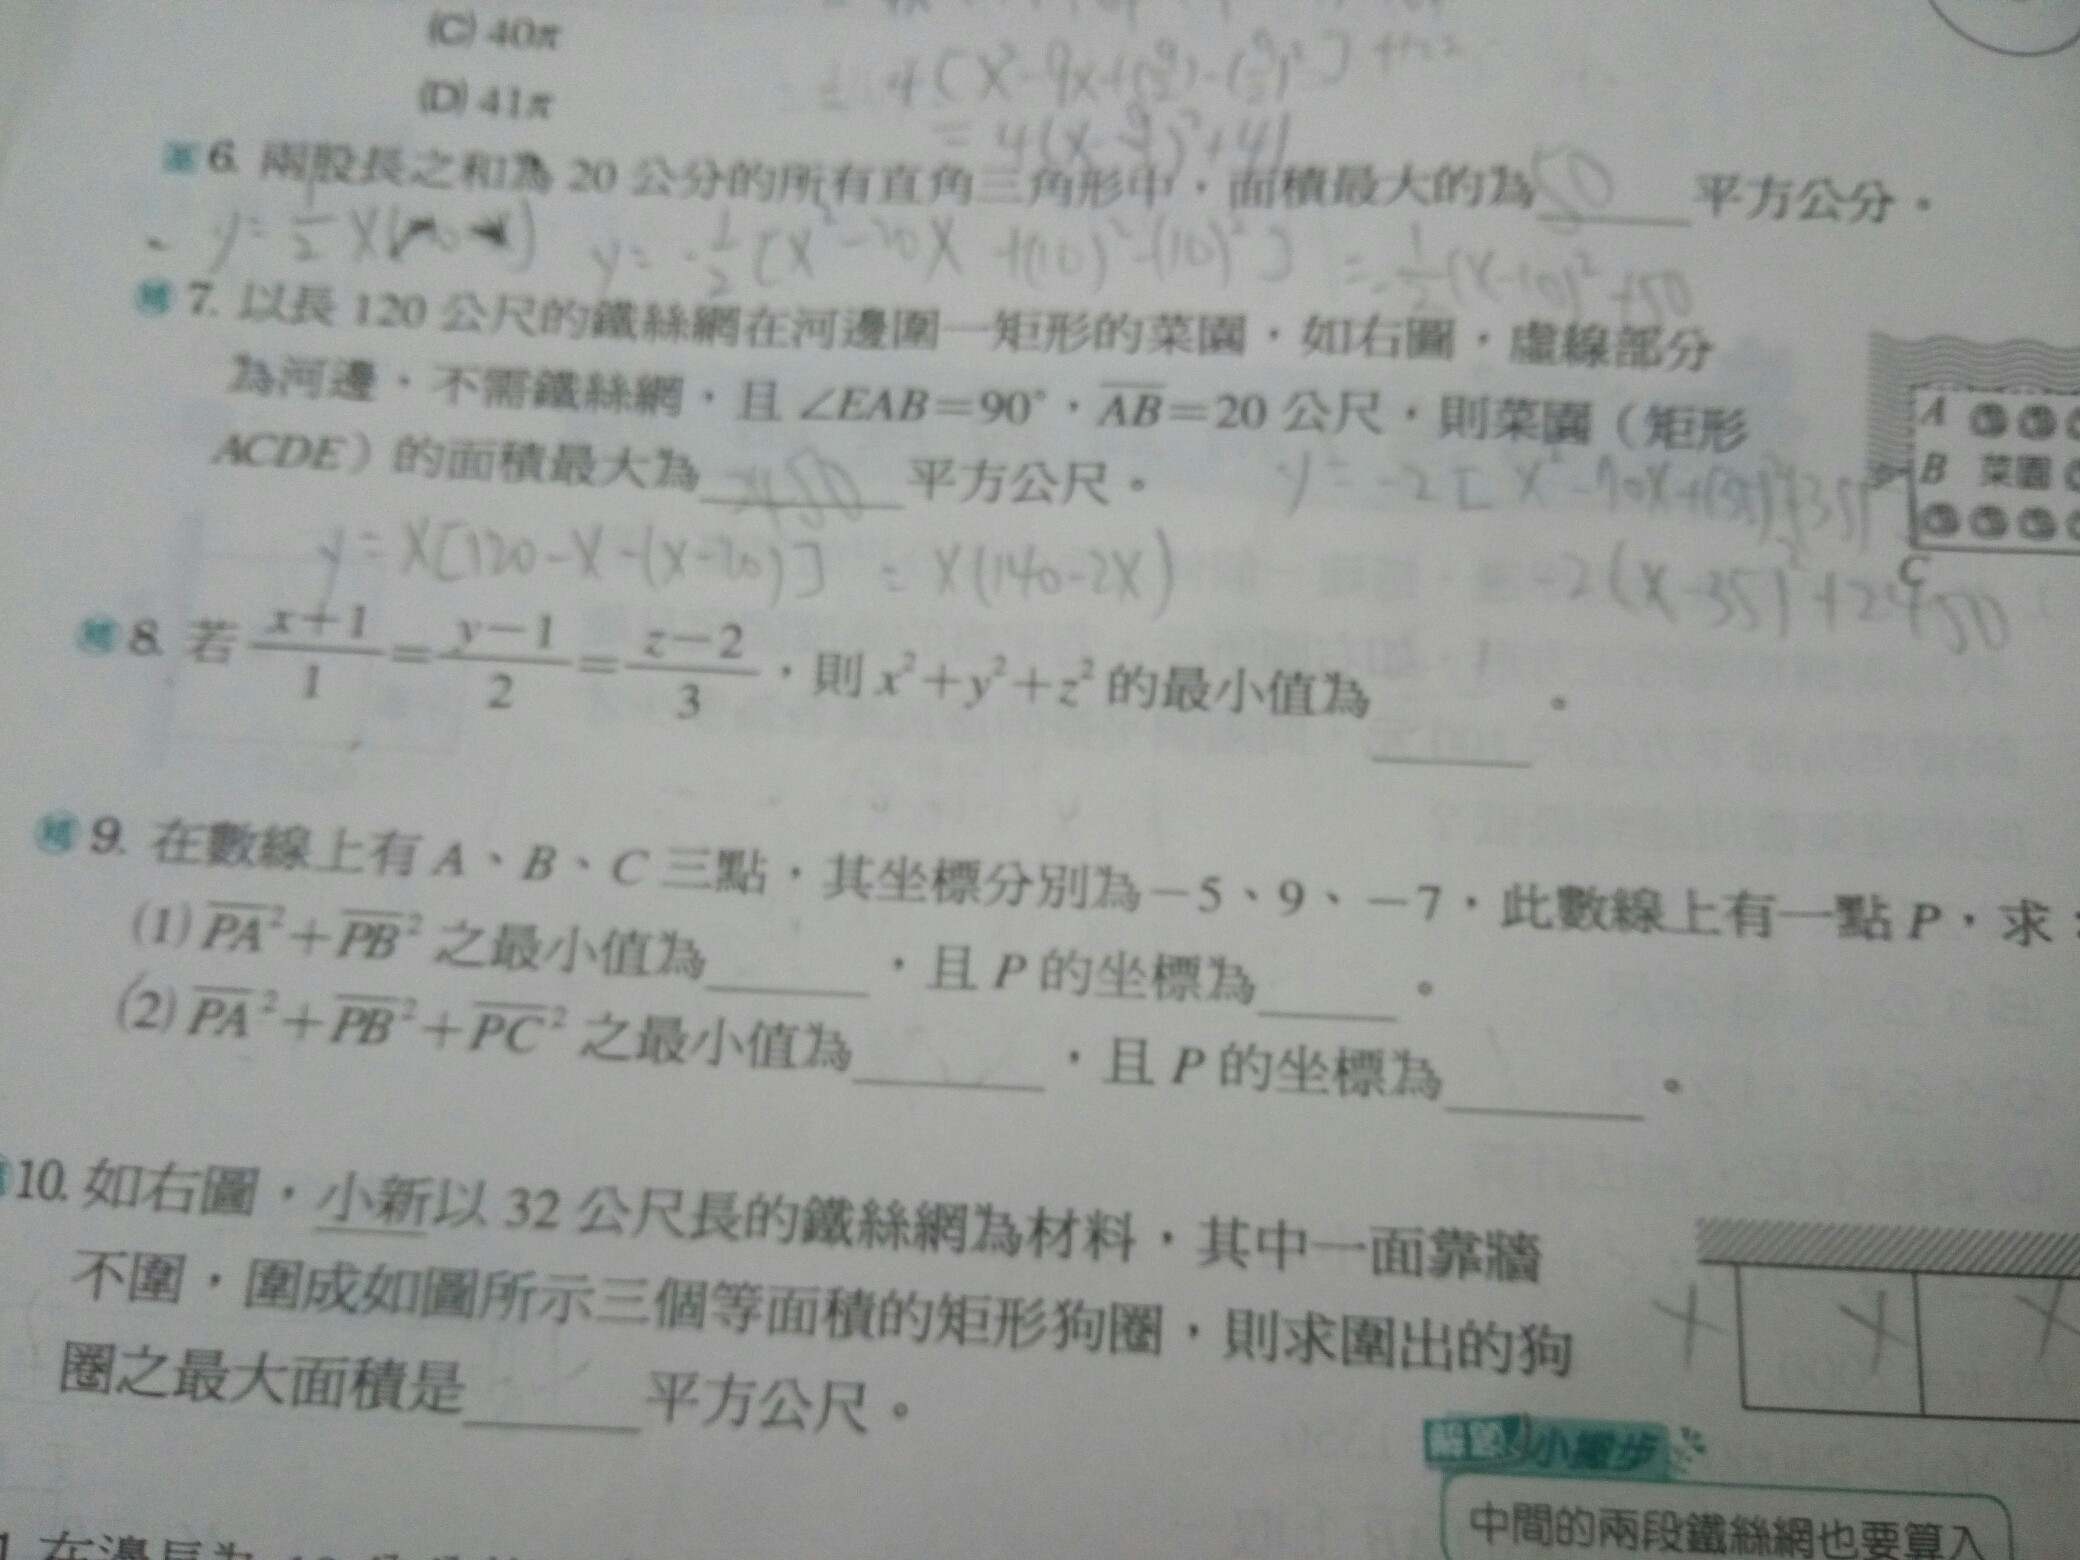 (C) 40π
= 4[x²-9x+(9/2)²-(9/2)²]+122
(D) 41π
= 4(x-9/2)²+41
基 6. 兩股長之和為 20 公分的所有直角三角形中，面積最大的為 50 平方公分。
y=1/2x(20-x) y=-1/2[x²-20x+(10)²-(10)²] =-1/2(x-10)²+50
7. 以長 120 公尺的鐵絲網在河邊圍一矩形的菜園，如右圖，虛線部分
為河邊，不需鐵絲網，且 ∠EAB=90°，AB=20 公尺，則菜園（矩形
ACDE）的面積最大為 2450 平方公尺。
A
B 菜園
C
y=-2[x²-70x+(35)²
y=x[120-x-(x-20)] =x(140-2x)
-2(x-35)²+2450
8. 若 x+1/1=y-1/2=z-2/3，則 x²+y²+z² 的最小值為____。
9. 在數線上有 A、B、C 三點，其坐標分別為-5、9、-7，此數線上有一點 P，求：
(1) PA²+PB² 之最小值為____，且 P 的坐標為____。
(2) PA²+PB²+PC² 之最小值為____，且 P 的坐標為____。
10. 如右圖，小新以 32 公尺長的鐵絲網為材料，其中一面靠牆
不圍，圍成如圖所示三個等面積的矩形狗圈，則求圍出的狗
圈之最大面積是____平方公尺。
x x x
解題小撇步
中間的兩段鐵絲網也要算入